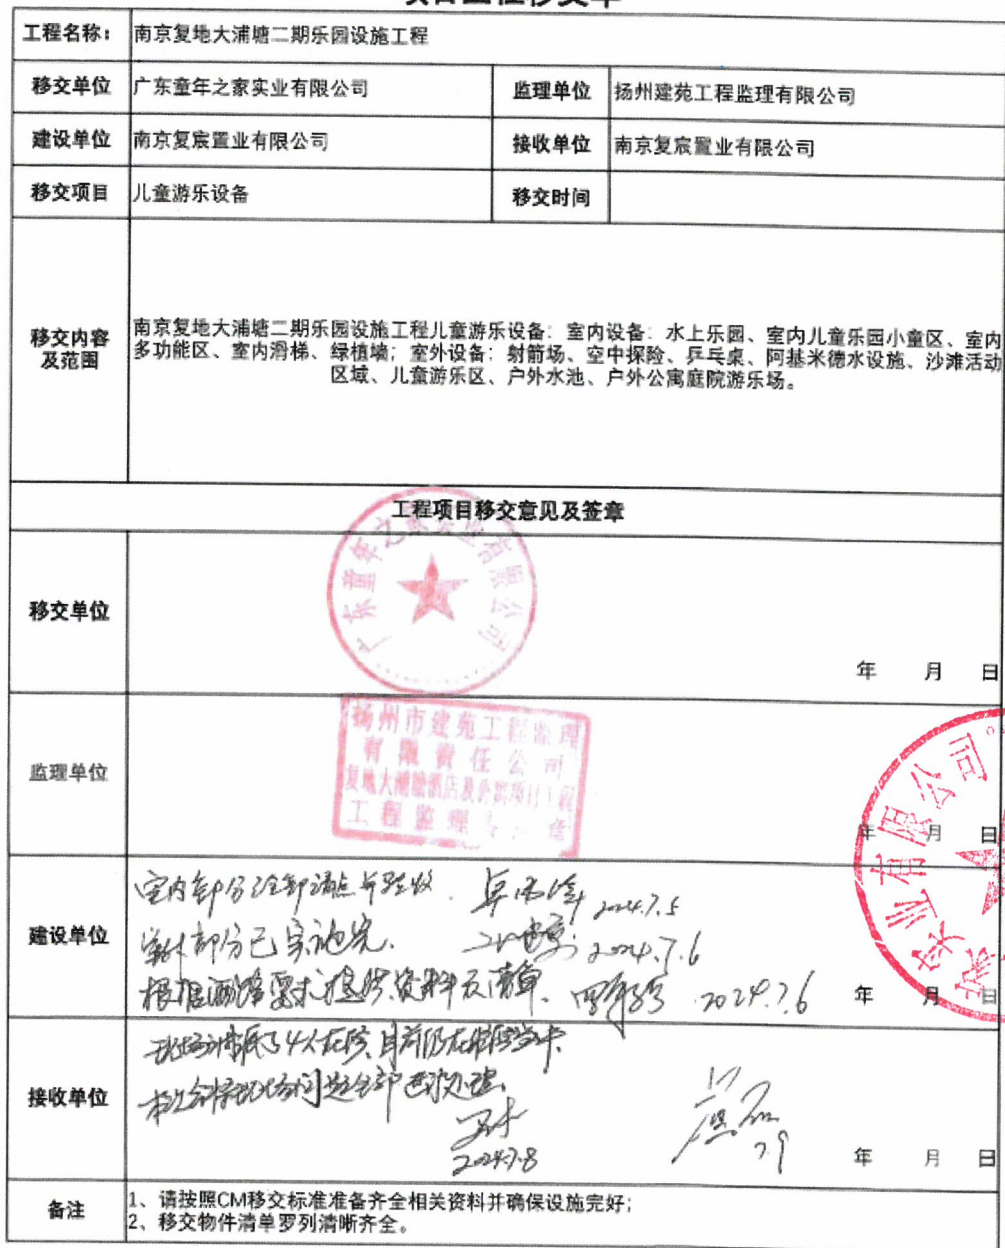 工程名称： 南京复地大浦塘二期乐园设施工程
移交单位 广东童年之家实业有限公司 监理单位 扬州建苑工程监理有限公司
建设单位 南京复宸置业有限公司 接收单位 南京复宸置业有限公司
移交项目 儿童游乐设备 移交时间
移交内容及范围
南京复地大浦塘二期乐园设施工程儿童游乐设备：室内设备：水上乐园、室内儿童乐园小童区、室内
多功能区、室内滑梯、绿植墙；室外设备：射箭场、空中探险、乒乓桌、阿基米德水设施、沙滩活动
区域、儿童游乐区、户外水池、户外公寓庭院游乐场。
工程项目移交意见及签章
广东童年之家实业有限公司
移交单位
年 月 日
扬州市建苑工程监理
有限责任公司
复地大浦塘酒店及公寓项目工程
工程监理专 章
监理单位
年 月 日
业有限公司
室内部分已全部清点并验收. 2024.7.5
建设单位
部分已实施完. 2024.7.6
根据酒管要求提供资料及清单. 2024.7.6
年 月 日
接收单位
目前仍在
现场问题全部
2024.7.8
7.9
年 月 日
备注
1、请按照CM移交标准准备齐全相关资料并确保设施完好；
2、移交物件清单罗列清晰齐全。